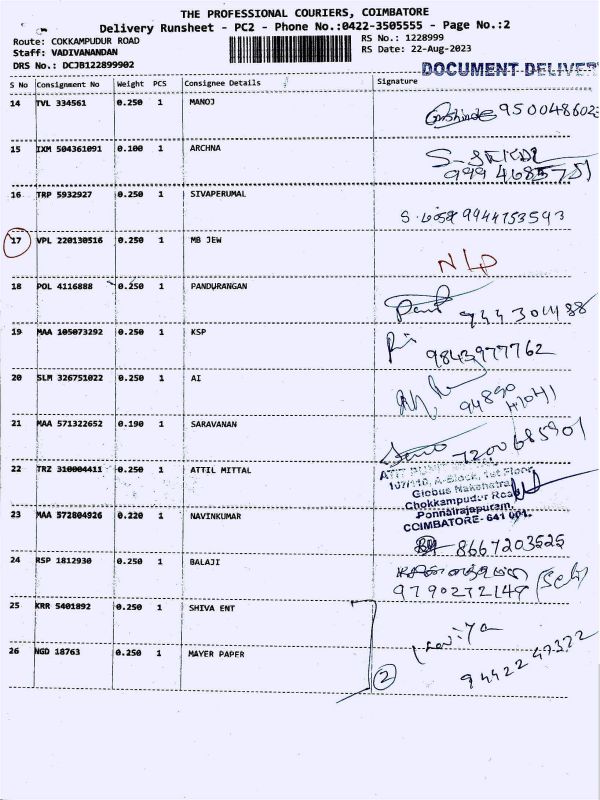 THE PROFESSIONAL COURIERS, COIMBATORE
Delivery Runsheet - PC2 - Phone No.:0422-3505555 - Page No.:2
Route: COKKAMPUDUR ROAD
RS No.: 1228999
Staff: VADIVANANDAN
RS Date: 22-Aug-2023
DRS No.: DCJB122899902
DOCUMENT DELIVER
S No Consignment No Weight PCS Consignee Details Signature
14 TVL 334561 0.250 1 MANOJ
9500486023
15 IXM 504361091 0.100 1 ARCHNA
S-
16 TRP 5932927 0.250 1 SIVAPERUMAL
S. 9944753593
17 VPL 220130516 0.250 1 MB JEW
N/P
18 POL 4116888 0.250 1 PANDURANGAN
19 MAA 105073292 0.250 1 KSP
9843977762
20 SLM 326751022 0.250 1 AI
21 MAA 571322652 0.190 1 SARAVANAN
7200685901
22 TRZ 310004411 0.250 1 ATTIL MITTAL
107/110, A-Block, 1st Floor
Globus Nakshatra
Chokkampudur Road
Ponnairajapuram,
COIMBATORE- 641 001.
23 MAA 572804926 0.220 1 NAVINKUMAR
8667203525
24 RSP 1812930 0.250 1 BALAJI
9790272149 (Self)
25 KRR 5401892 0.250 1 SHIVA ENT
26 NGD 18763 0.250 1 MAYER PAPER
94422 47322
2